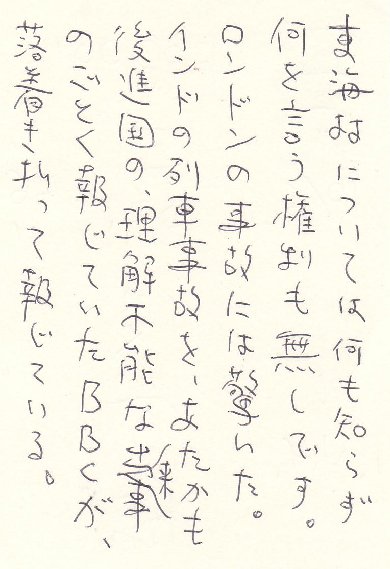 東海村については何も知らず
何を言う権利も無しです。
ロンドンの事故には驚いた。
インドの列車事故を、あたかも
後進国の、理解不能な出来事
のごとく報じていたBBCが、
落着き払って報じている。